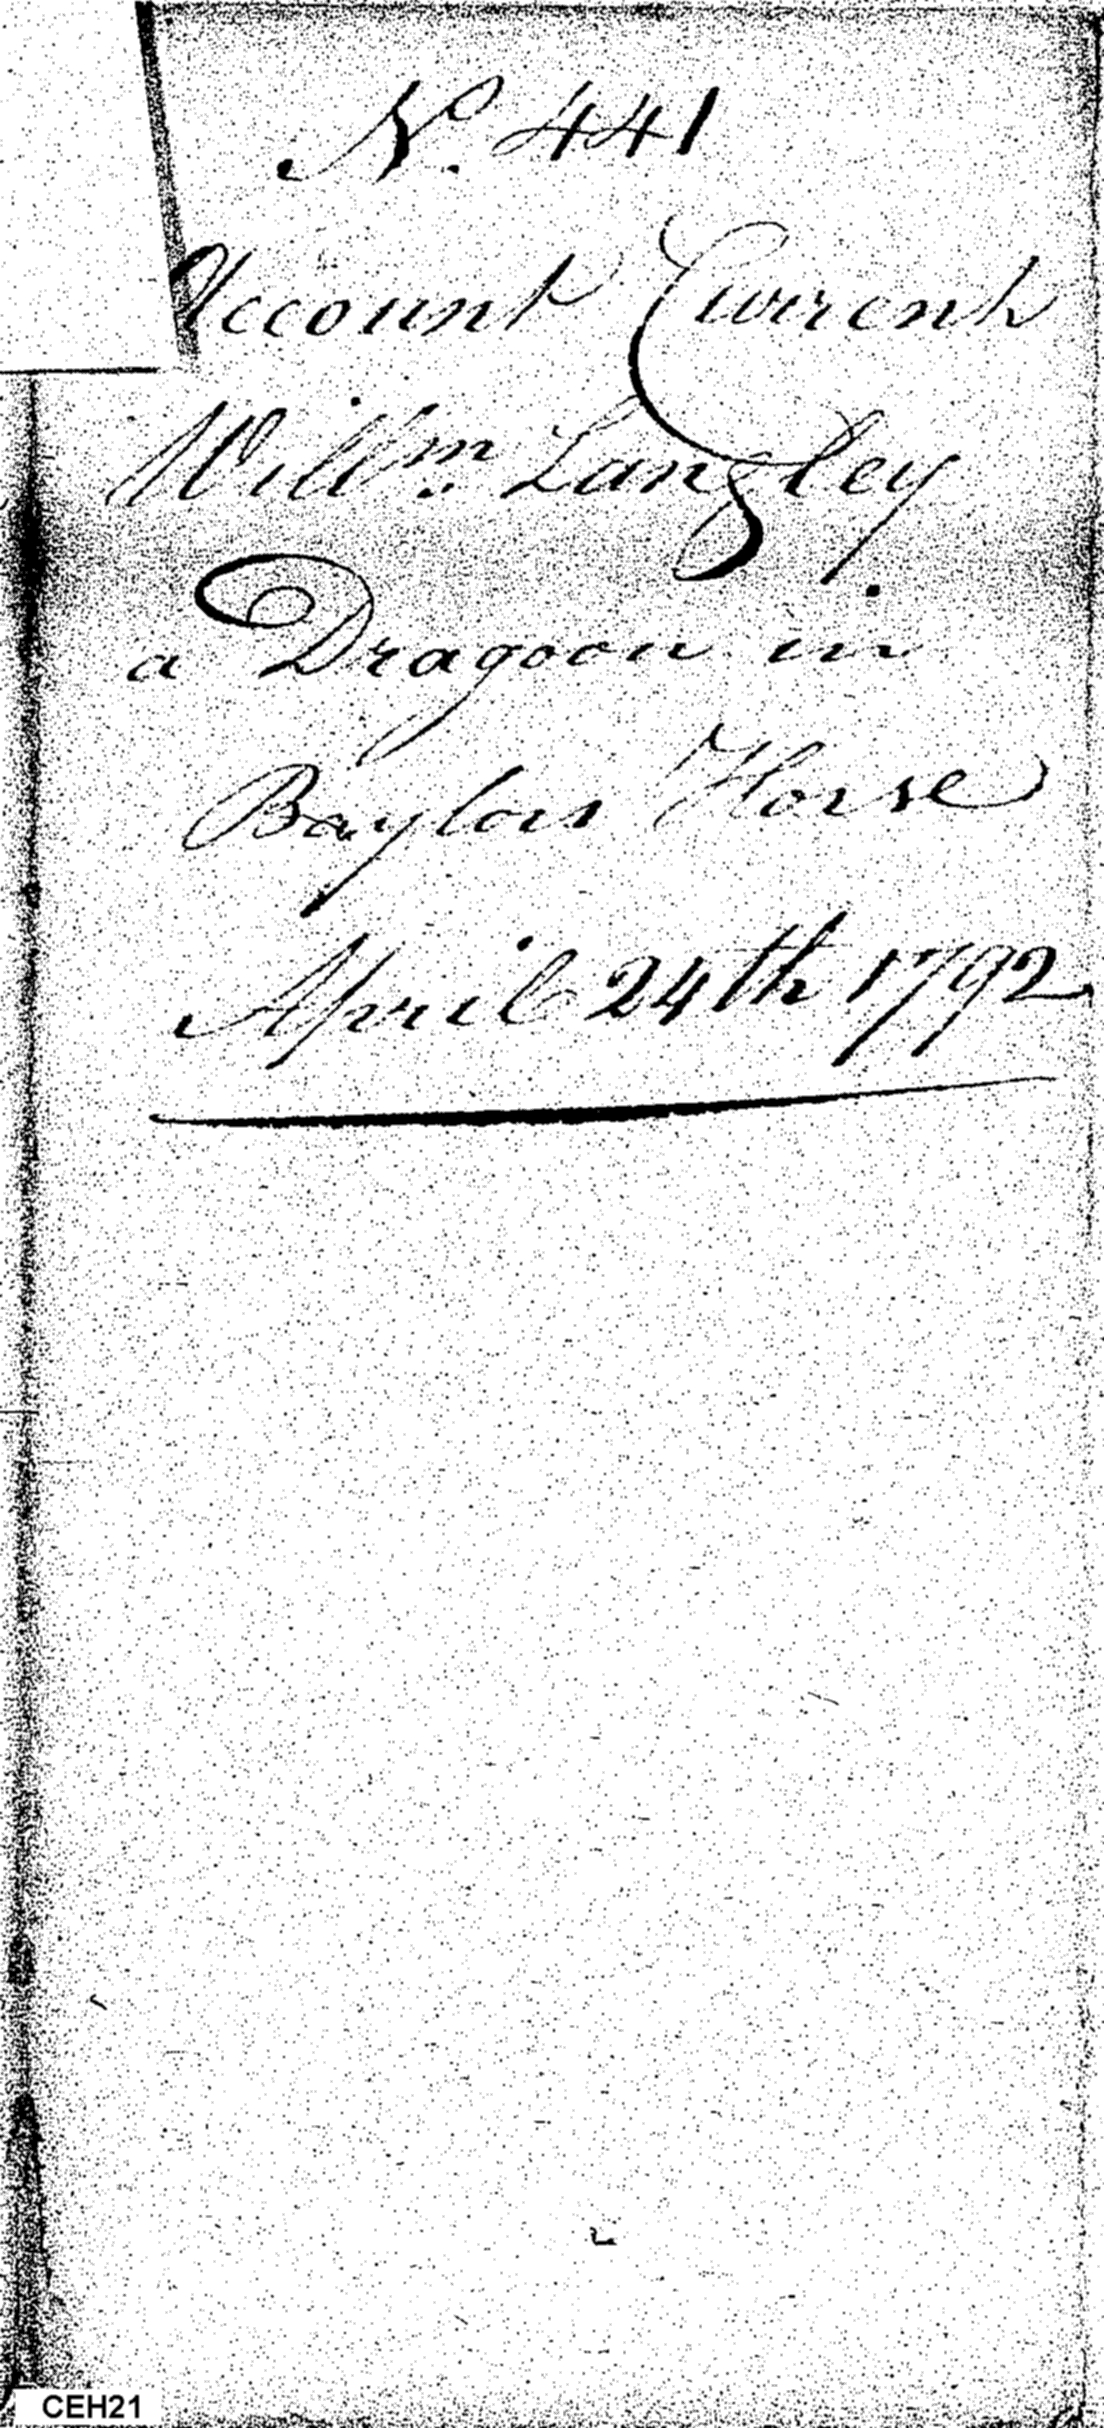 No. 441
Account Current
Willm. Langley
a Dragoon in
Baylors Horse
April 24th 1792
CEH21